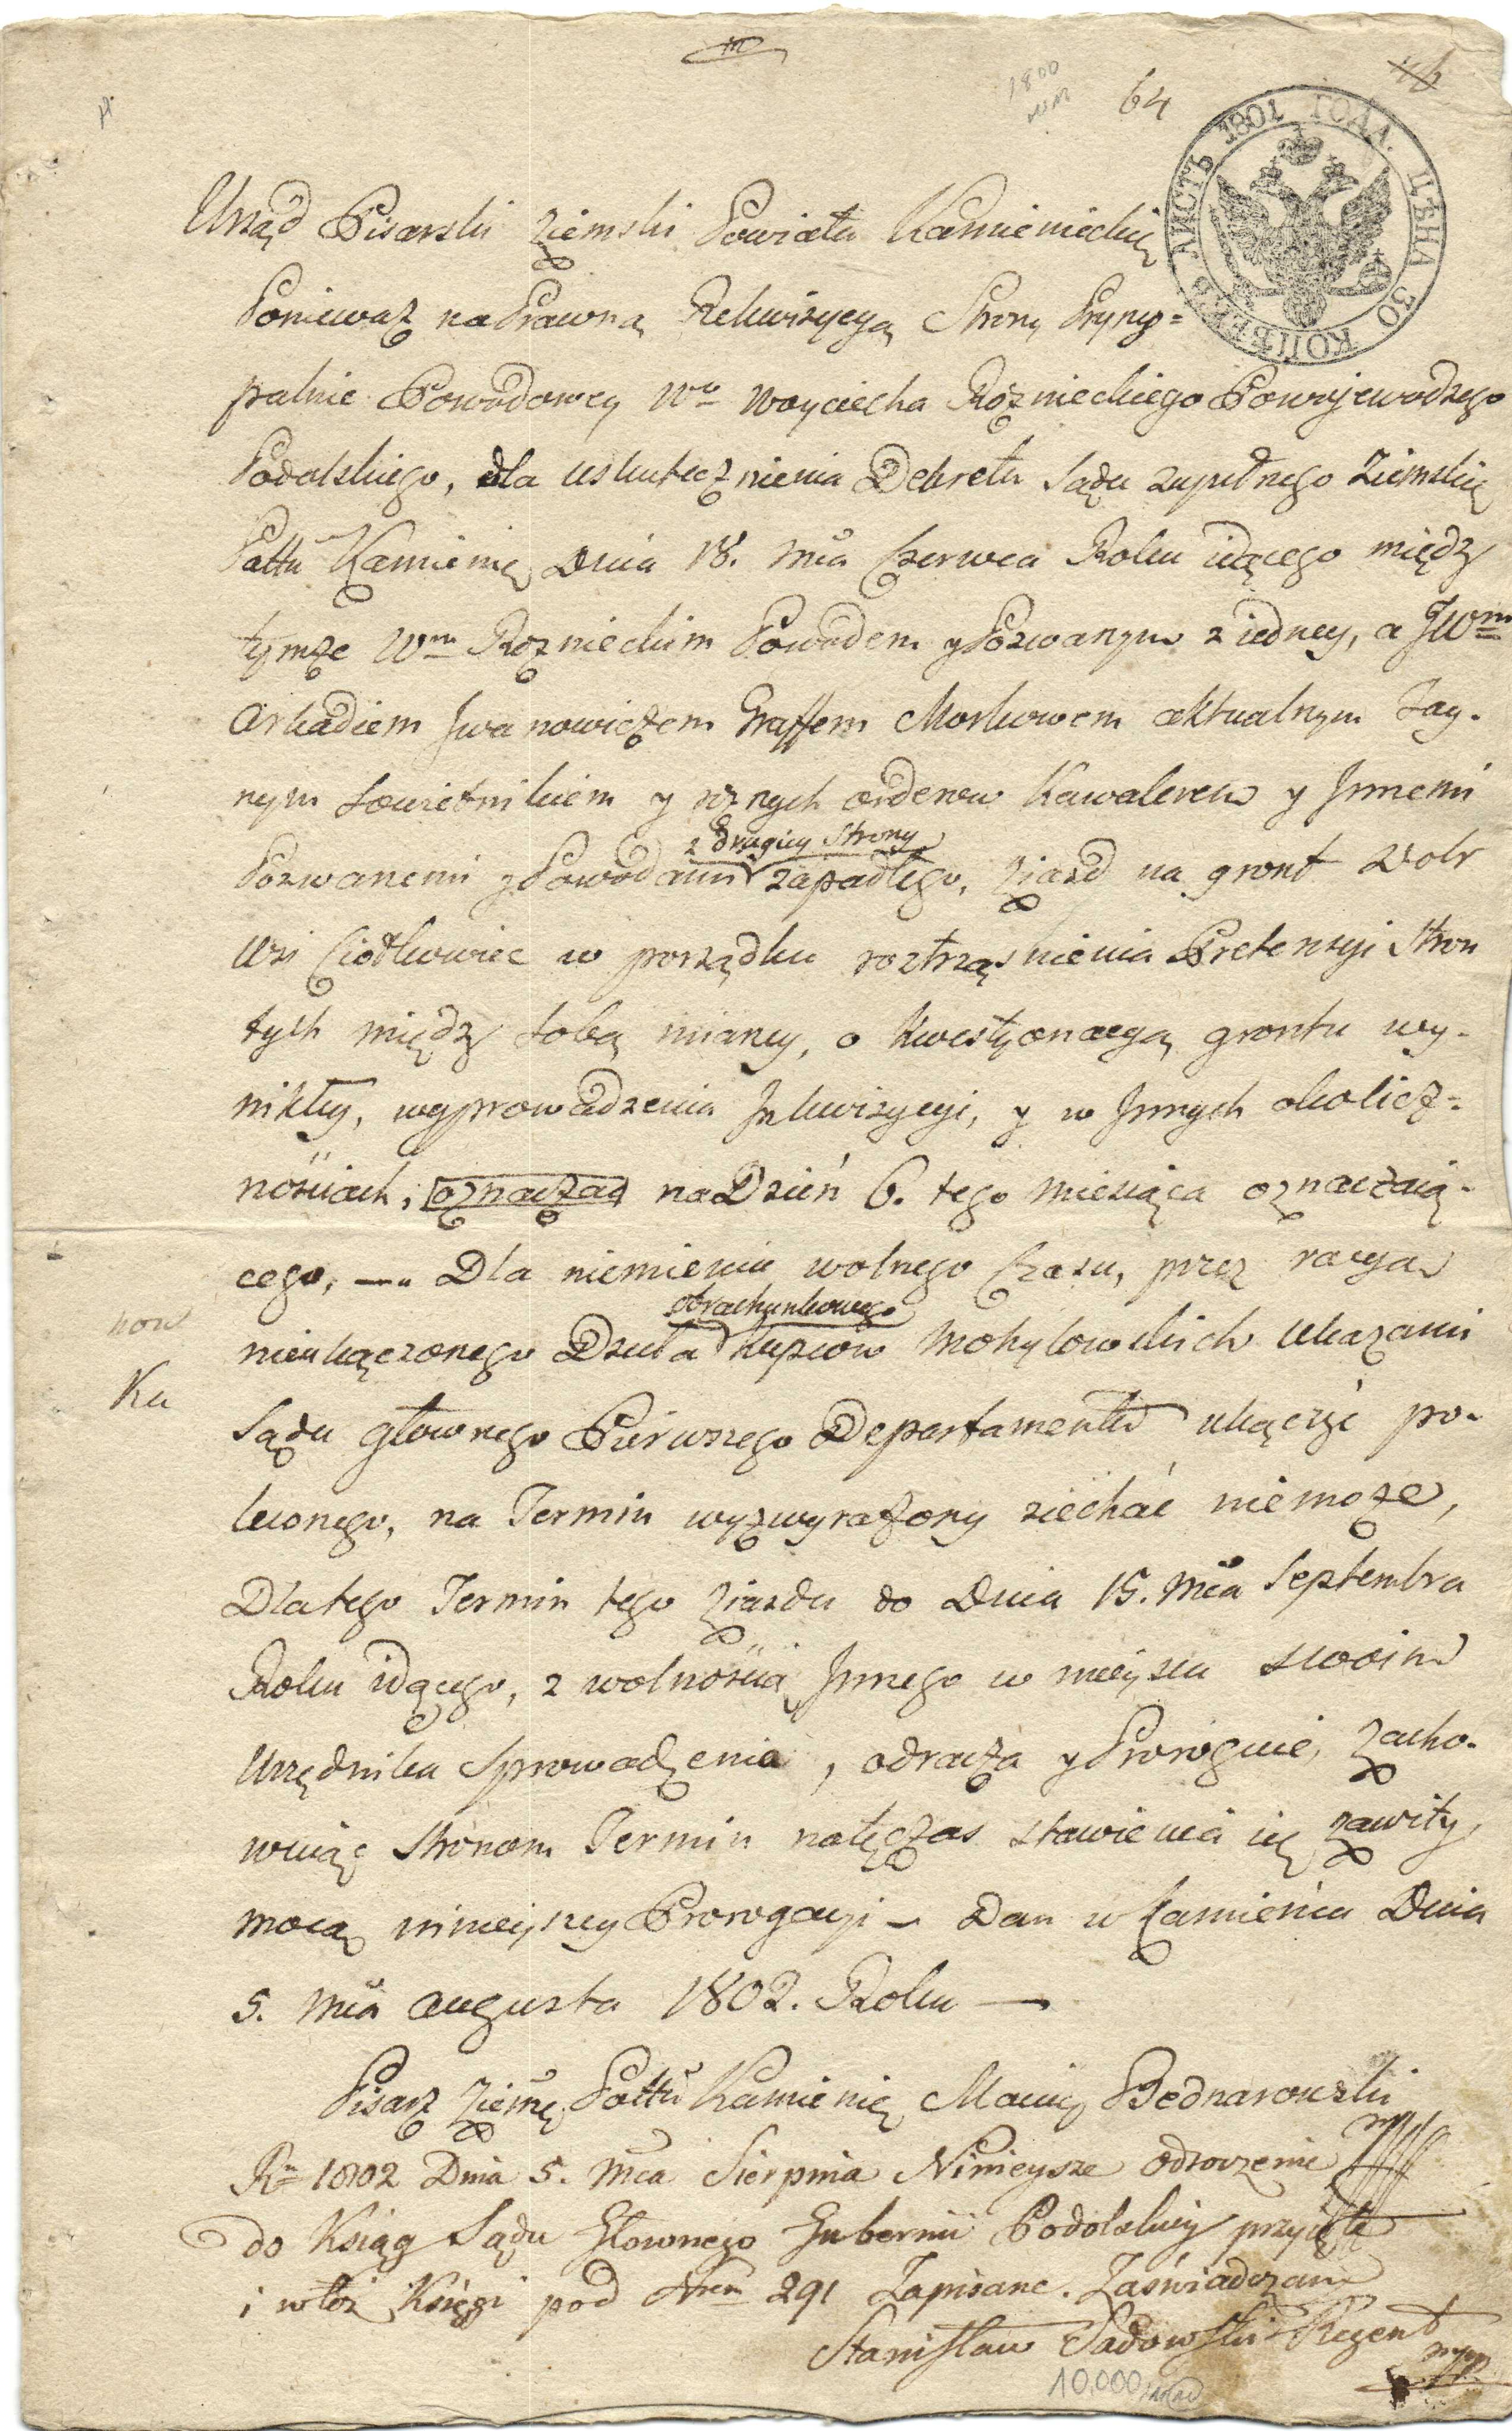 1800
64
46
ЛИСТЪ 1801 ГОДА. ЦѢНА 30 КОПѢЕКЪ
Urząd Pisarski Ziemski Powiatu Kamienieckię
Ponieważ na Prawną Rekwizycyą Strony Pryncy=
palnie Powodowey Wo Woyciecha Rożnieckiego Powojewodzego
Podolskiego, dla uskutecznienia Dekretu Sądu zupełnego Ziemskię
Pattu Kamienię Dnia 18. Mca Czerwca Roku idącego między
tymże Wm Rożnieckim Powodem y Pozwanym z iedney, a JWm
Arkadiem Jwanowiczem Graffem Morkowem aktualnym Tay-
nym Sowietnikiem y rożnych orderow Kawalerem y Jnnemi
Pozwanemi y Powodami z drugiey Strony zapadłego, Zjazd na gront Dobr
Wsi Ciotkowiec w porządku roztrząsnienia Pretensyi Stron
tych między sobą mianey, o kwestyonacyą grontu wy-
nikłey, wyprowadzenia Jnkwizycyi, y w Jnnych okolicz=
nościach, oznacza na Dzień 6. tego miesiąca oznaczaią-
cego, — Dla niemienia wolnego Czasu, przez racyą
nieukączonego Dzieła obrachunkowego Kupcow Mohylowskich Ukazami
now
Ku
Sądu głownego Pierwszego Departamentu ukączyć po-
leconego, na Termin wyżwyrażony ziechać niemoże,
Dlatego Termin tego Zjazdu do Dnia 15. Mca Septembra
Roku idącego, z wolnością Jnnego w mieyscu swoim
Urzędnika Sprowadzenia, odracza y Proroguie, Zacho-
wuiąc Stronom Termin natęczas stawienia się zawity,
mocą ninieyszey Prorogacyi — Dan w Kamieńcu Dnia
5. Mca Augusta 1802. Roku —
Pisarz Ziemę Pottu Kamienię Maciey Bednarowski
mpp
Ru 1802 Dnia 5. Mca Sierpnia Ninieysze odroczenie
do Ksiąg Sądu Głownego Gubernii Podolskiey przyięte
i w też Księgi pod Nrem 291 Zapisane. Zaświadczam
Stanisław Sadowski Regent
mpp.
10,000